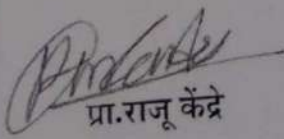 प्रा.राजू केंद्रे